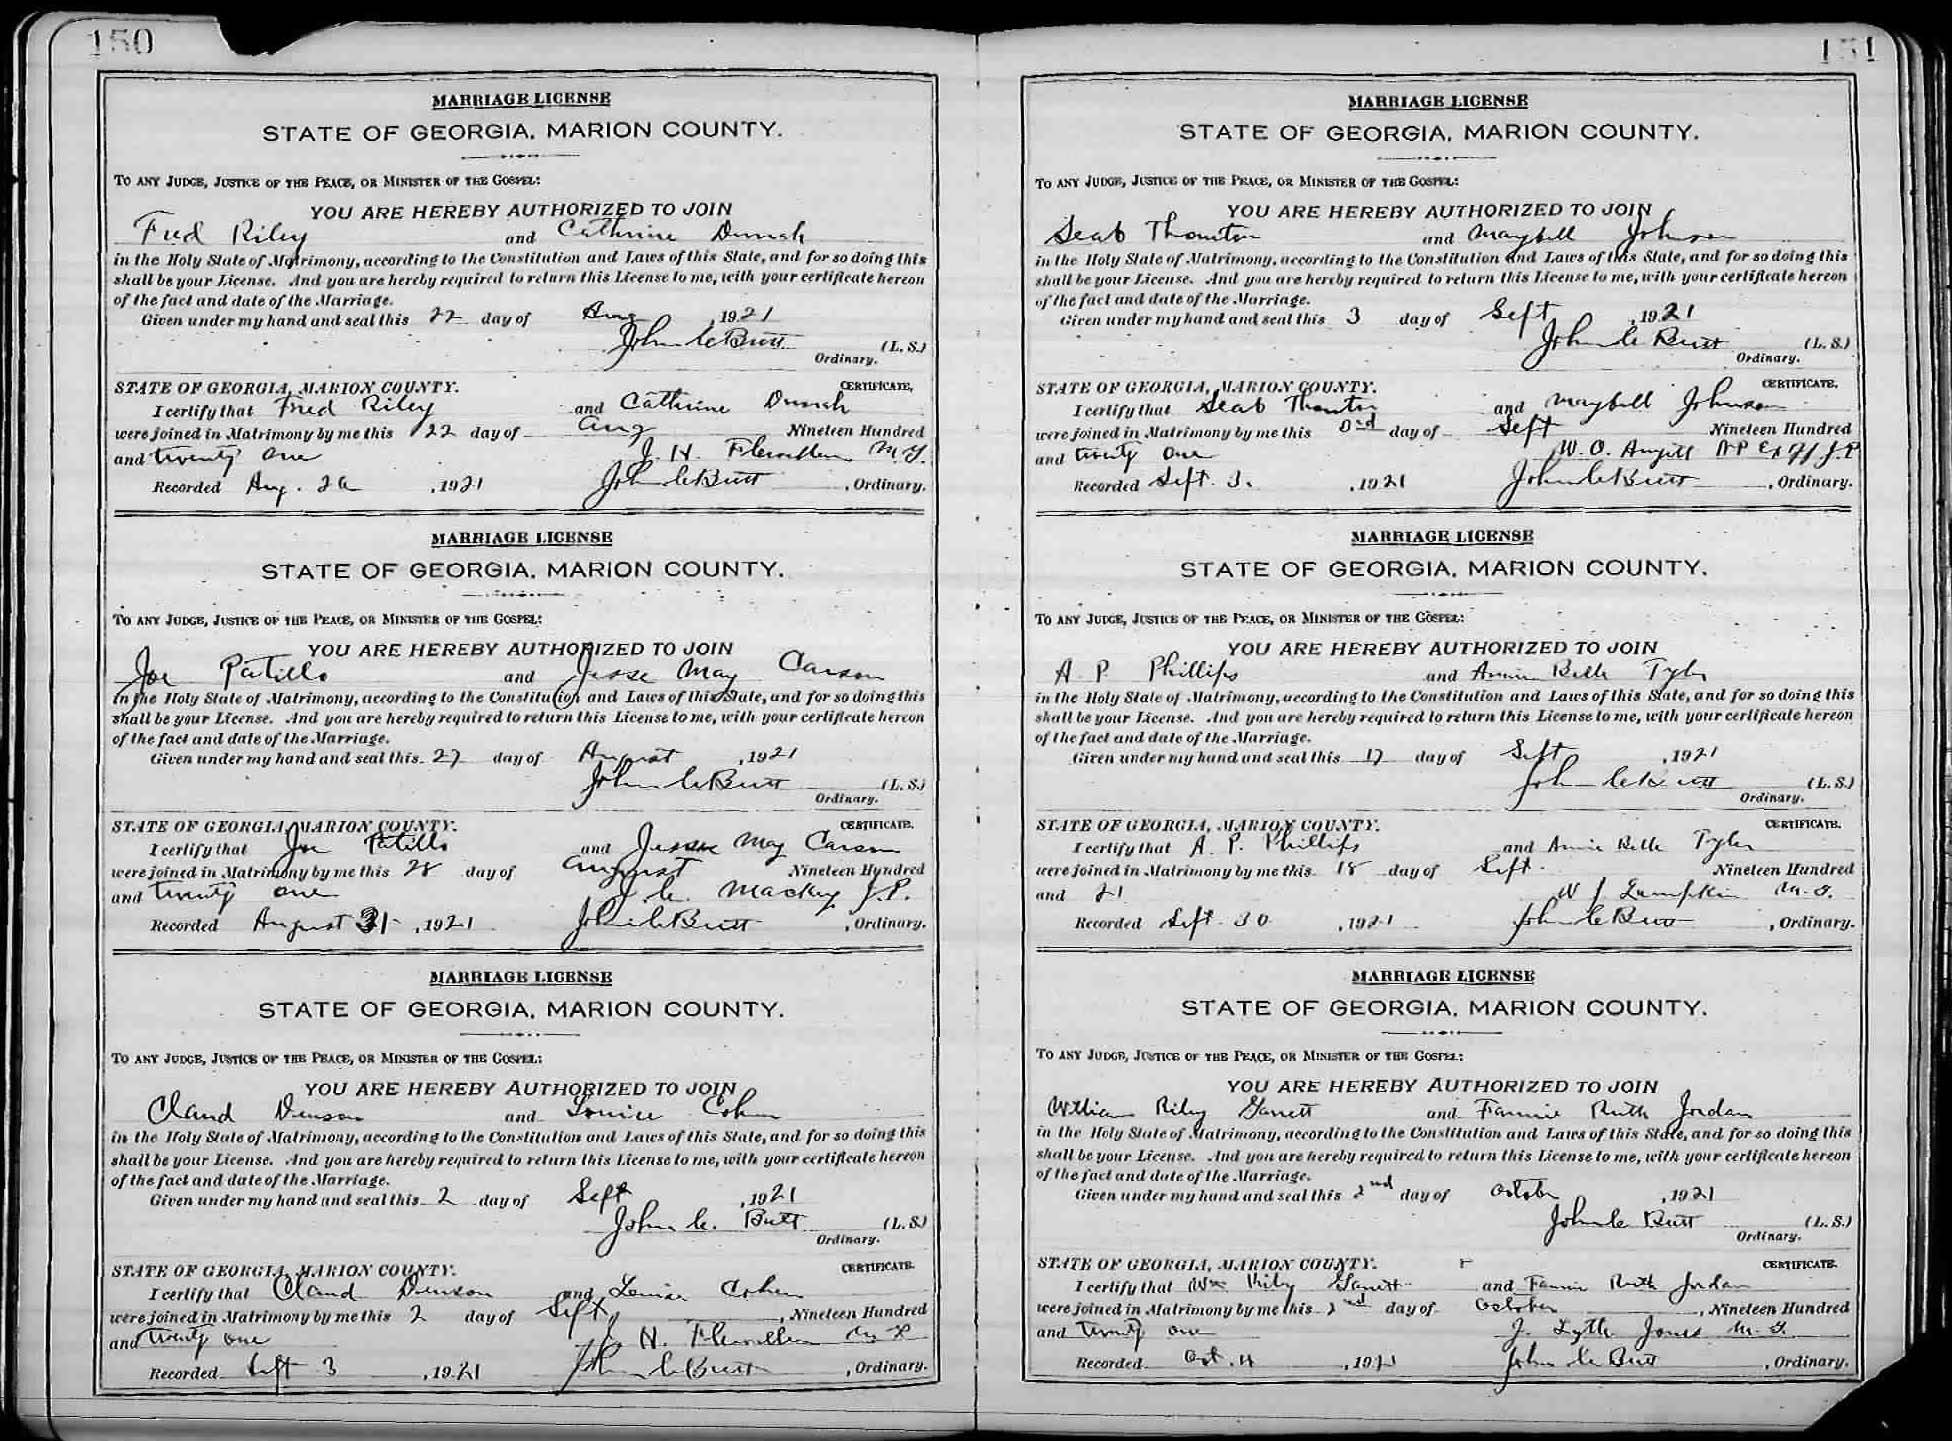 150
MARRIAGE LICENSE
STATE OF GEORGIA, MARION COUNTY.
TO ANY JUDGE, JUSTICE OF THE PEACE, OR MINISTER OF THE GOSPEL:
YOU ARE HEREBY AUTHORIZED TO JOIN
Fred Riley and Cathrine
in the Holy State of Matrimony, according to the Constitution and Laws of this State, and for so doing this
shall be your License. And you are hereby required to return this License to me, with your certificate hereon
of the fact and date of the Marriage.
Given under my hand and seal this 22 day of Aug, 1921
John C Butt (L. S.)
Ordinary.
STATE OF GEORGIA, MARION COUNTY. CERTIFICATE.
I certify that Fred Riley and Cathrine
were joined in Matrimony by me this 22 day of Aug Nineteen Hundred
and twenty one J. H. Flewellen M.G.
Recorded Aug. , 1921 John C Butt, Ordinary.
MARRIAGE LICENSE
STATE OF GEORGIA, MARION COUNTY.
TO ANY JUDGE, JUSTICE OF THE PEACE, OR MINISTER OF THE GOSPEL:
YOU ARE HEREBY AUTHORIZED TO JOIN
Joe Patillo and Jesse May Carson
in the Holy State of Matrimony, according to the Constitution and Laws of this State, and for so doing this
shall be your License. And you are hereby required to return this License to me, with your certificate hereon
of the fact and date of the Marriage.
Given under my hand and seal this 27 day of August, 1921
John C Butt (L. S.)
Ordinary.
STATE OF GEORGIA, MARION COUNTY. CERTIFICATE.
I certify that Joe Patillo and Jesse May Carson
were joined in Matrimony by me this 28 day of August Nineteen Hundred
and twenty one J. C. Mackey J.P.
Recorded August 31, 1921 John C Butt, Ordinary.
MARRIAGE LICENSE
STATE OF GEORGIA, MARION COUNTY.
TO ANY JUDGE, JUSTICE OF THE PEACE, OR MINISTER OF THE GOSPEL:
YOU ARE HEREBY AUTHORIZED TO JOIN
Claud Denson and Louise Cohen
in the Holy State of Matrimony, according to the Constitution and Laws of this State, and for so doing this
shall be your License. And you are hereby required to return this License to me, with your certificate hereon
of the fact and date of the Marriage.
Given under my hand and seal this 2 day of Sept, 1921
John C. Butt (L. S.)
Ordinary.
STATE OF GEORGIA, MARION COUNTY. CERTIFICATE.
I certify that Claud Denson and Louise Cohen
were joined in Matrimony by me this 2 day of Sept, Nineteen Hundred
and twenty one J. H. Flewellen
Recorded Sept 3, 1921 John C Butt, Ordinary.
151
MARRIAGE LICENSE
STATE OF GEORGIA, MARION COUNTY.
TO ANY JUDGE, JUSTICE OF THE PEACE, OR MINISTER OF THE GOSPEL:
YOU ARE HEREBY AUTHORIZED TO JOIN
Seab Thornton and Maybell Johnson
in the Holy State of Matrimony, according to the Constitution and Laws of this State, and for so doing this
shall be your License. And you are hereby required to return this License to me, with your certificate hereon
of the fact and date of the Marriage.
Given under my hand and seal this 3 day of Sept, 1921
John C Butt (L. S.)
Ordinary.
STATE OF GEORGIA, MARION COUNTY. CERTIFICATE.
I certify that Seab Thornton and Maybell Johnson
were joined in Matrimony by me this day of Sept Nineteen Hundred
and twenty one W. O. NP Ex Off J.P
Recorded Sept. 3., 1921 John C Butt, Ordinary.
MARRIAGE LICENSE
STATE OF GEORGIA, MARION COUNTY.
TO ANY JUDGE, JUSTICE OF THE PEACE, OR MINISTER OF THE GOSPEL:
YOU ARE HEREBY AUTHORIZED TO JOIN
A P Phillips and Annie Belle Tyler
in the Holy State of Matrimony, according to the Constitution and Laws of this State, and for so doing this
shall be your License. And you are hereby required to return this License to me, with your certificate hereon
of the fact and date of the Marriage.
Given under my hand and seal this 17 day of Sept, 1921
John C Butt (L. S.)
Ordinary.
STATE OF GEORGIA, MARION COUNTY. CERTIFICATE.
I certify that A. P. Phillips and Annie Belle Tyler
were joined in Matrimony by me this 18 day of Sept. Nineteen Hundred
and 21 W J Lumpkin M.G.
Recorded Sept. 30, 1921 John C Butt, Ordinary.
MARRIAGE LICENSE
STATE OF GEORGIA, MARION COUNTY.
TO ANY JUDGE, JUSTICE OF THE PEACE, OR MINISTER OF THE GOSPEL:
YOU ARE HEREBY AUTHORIZED TO JOIN
William Riley Garrett and Fannie Ruth Jordan
in the Holy State of Matrimony, according to the Constitution and Laws of this State, and for so doing this
shall be your License. And you are hereby required to return this License to me, with your certificate hereon
of the fact and date of the Marriage.
Given under my hand and seal this 2nd day of October, 1921
John C Butt (L. S.)
Ordinary.
STATE OF GEORGIA, MARION COUNTY. CERTIFICATE.
I certify that Wm Riley Garrett and Fannie Ruth Jordan
were joined in Matrimony by me this 2nd day of October, Nineteen Hundred
and twenty one J. Lytle Jones M.G.
Recorded Oct. 4, 1921 John C Butt, Ordinary.